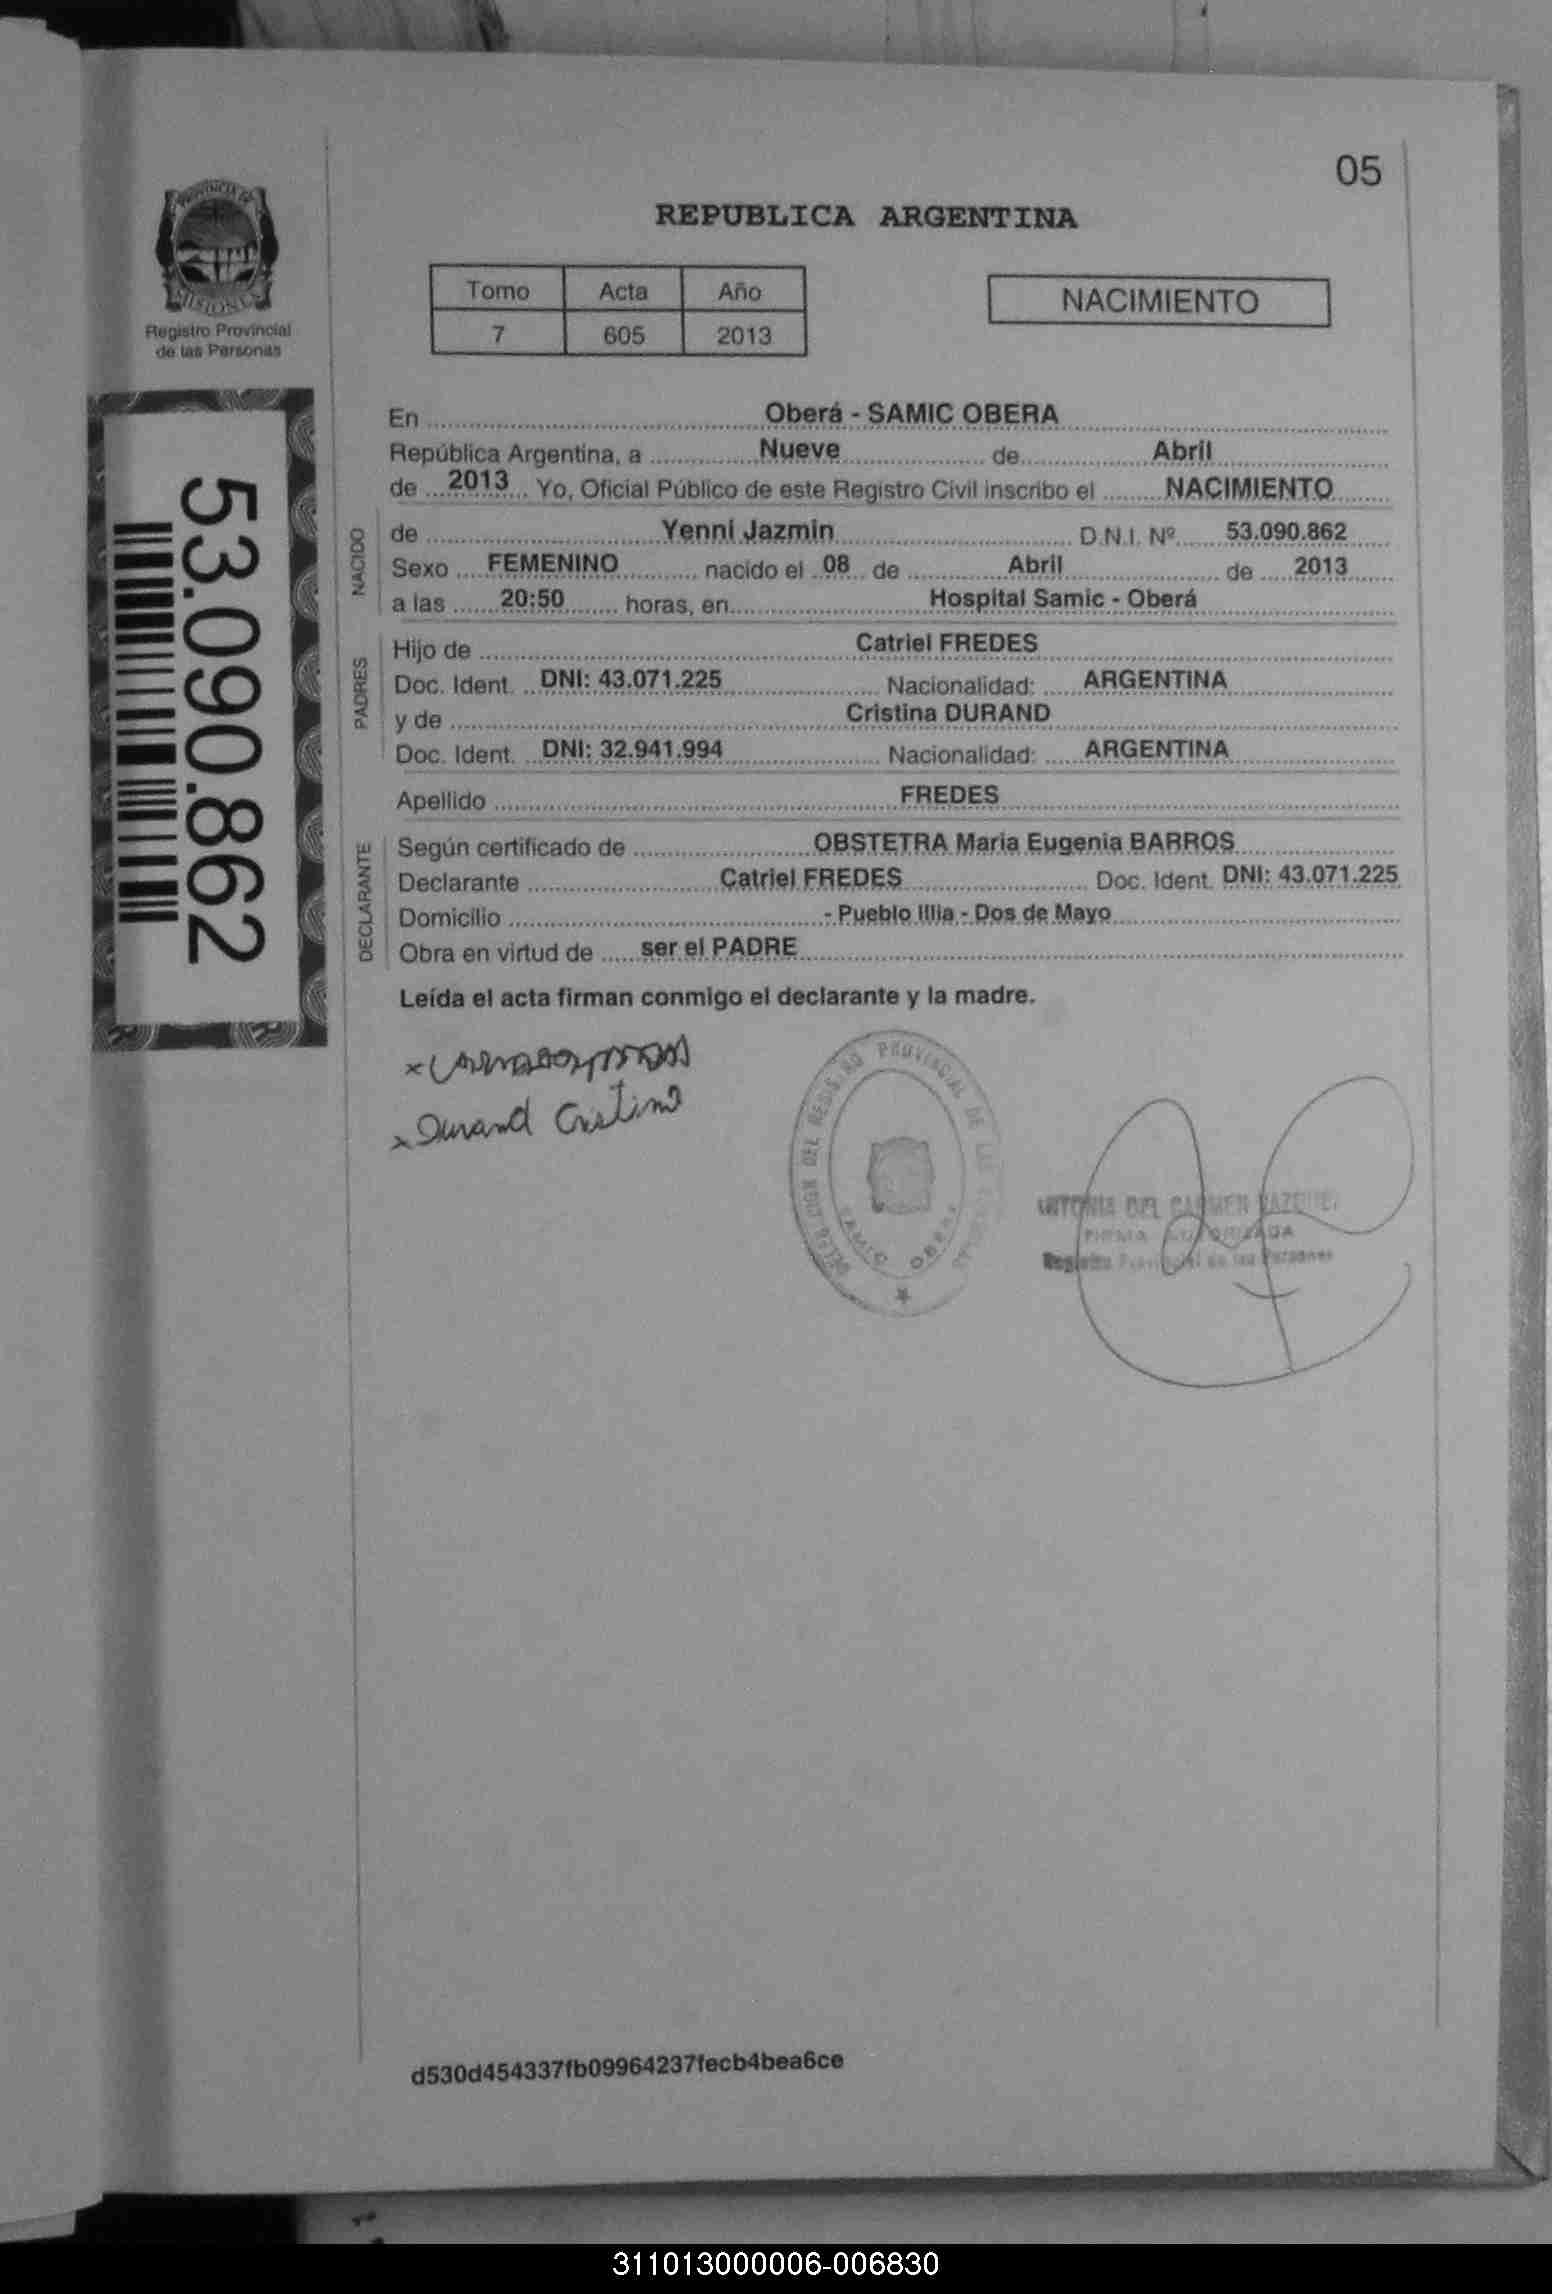 05
PROVINCIA DE
MISIONES
Registro Provincial
de las Personas
REPUBLICA ARGENTINA
Tomo Acta Año
7 605 2013
NACIMIENTO
53.090.862
En Oberá - SAMIC OBERA
República Argentina, a Nueve de Abril
de 2013 Yo, Oficial Público de este Registro Civil inscribo el NACIMIENTO
NACIDO
de Yenni Jazmin D.N.I. Nº 53.090.862
Sexo FEMENINO nacido el 08 de Abril de 2013
a las 20:50 horas, en Hospital Samic - Oberá
PADRES
Hijo de Catriel FREDES
Doc. Ident. DNI: 43.071.225 Nacionalidad: ARGENTINA
y de Cristina DURAND
Doc. Ident. DNI: 32.941.994 Nacionalidad: ARGENTINA
Apellido FREDES
DECLARANTE
Según certificado de OBSTETRA Maria Eugenia BARROS
Declarante Catriel FREDES Doc. Ident. DNI: 43.071.225
Domicilio - Pueblo Illia - Dos de Mayo
Obra en virtud de ser el PADRE
Leída el acta firman conmigo el declarante y la madre.
x Durand Cristina
DELEGACION DEL REGISTRO PROVINCIAL DE LAS
SAMIC OBERA
DEL CARMEN
FIRMA AUTORIZADA
Registro Provincial de las Personas
d530d454337fb09964237fecb4bea6ce
311013000006-006830